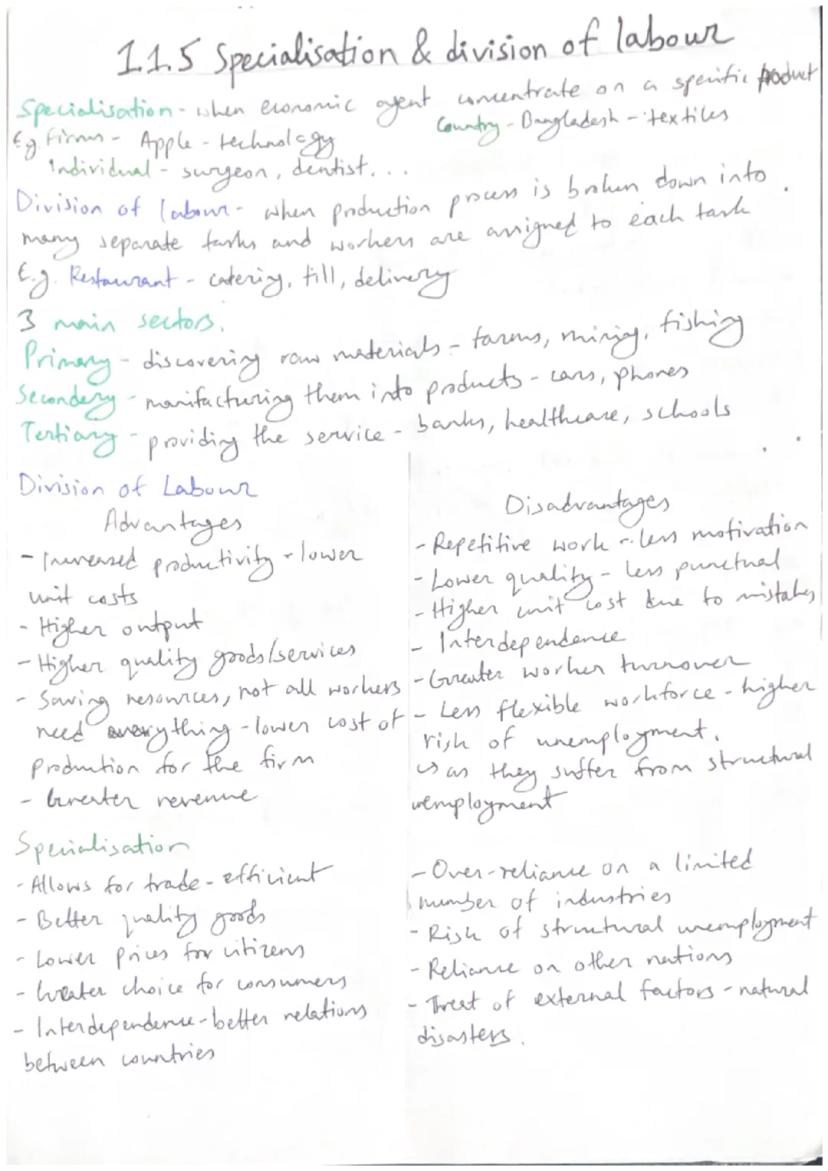 1.1.5 Specialisation & division of labour
Specialisation - when economic agent concentrate on a specific product
Eg Firms - Apple - technology
Country - Bangladesh - textiles
Individual - surgeon, dentist...
Division of labour - when production process is broken down into
many separate tasks and workers are assigned to each task
E.g. Restaurant - catering, till, delivery
3 main sectors.
Primary - discovering raw materials - farms, mining, fishing
Secondery - manifacturing them into products - cars, phones
Tertiary - providing the service - banks, healthcare, schools
Division of Labour
Advantages
- Increased productivity - lower
unit costs
- Higher output
- Higher quality goods/services
- Saving resources, not all workers
need everything - lower cost of
production for the firm
- Greater revenue
Disadvantages
- Repetitive work - less motivation
- Lower quality - less punctual
- Higher unit cost due to mistakes
- Interdependence
- Greater worker turnover
- Less flexible workforce - higher
risk of unemployment.
↳ as they suffer from structural
unemployment
Specialisation
- Allows for trade - efficient
- Better quality goods
- Lower prices for citizens
- Greater choice for consumers
- Interdependence - better relations
between countries
- Over-reliance on a limited
number of industries
- Risk of structural unemployment
- Reliance on other nations
- Threat of external factors - natural
disasters.